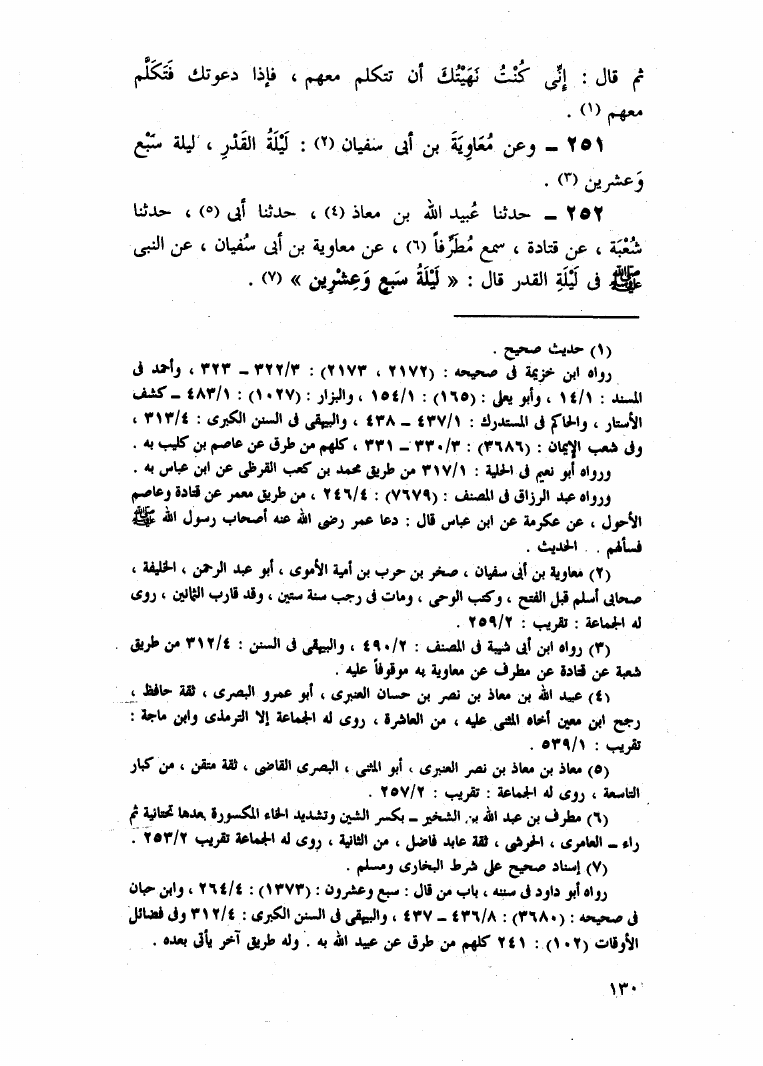 ثم قال : إِنِّى كُنْتُ نَهَيْتُكَ أن تتكلم معهم ، فإذا دعوتك فَتَكَلَّم
معهم (١) .
٢٥١ ــ وعن مُعَاوِيَةَ بن أبى سفيان (٢) : لَيْلَةُ القَدْرِ ، ليلة سَبْع
وَعشرين (٣) .
٢٥٢ ــ حدثنا عُبيد الله بن معاذ (٤) ، حدثنا أبى (٥) ، حدثنا
شُعْبَة ، عن قتادة ، سمع مُطَرِّفاً (٦) ، عن معاوية بن أبى سُفيان ، عن النبى
ﷺ فى لَيْلَةِ القدر قال : « لَيْلَةُ سَبعٍ وَعِشْرِين » (٧) .
(١) حديث صحيح .
رواه ابن خزيمة فى صحيحه : (٢١٧٢ ، ٢١٧٣) : ٣٢٢/٣ ــ ٣٢٣ ، وأحمد فى
المسند : ١٤/١ ، وأبو يعلى : (١٦٥) : ١٥٤/١ ، والبزار : (١٠٢٧) : ٤٨٣/١ ــ كشف
الأستار ، والحاكم فى المستدرك : ٤٣٧/١ ــ ٤٣٨ ، والبيهقى فى السنن الكبرى : ٣١٣/٤ ،
وفى شعب الإيمان : (٣٦٨٦) : ٣٣٠/٣ ــ ٣٣١ ، كلهم من طرق عن عاصم بن كليب به .
ورواه أبو نعيم فى الحلية : ٣١٧/١ من طريق محمد بن كعب القرظى عن ابن عباس به .
ورواه عبد الرزاق فى المصنف : (٧٦٧٩) : ٢٤٦/٤ ، من طريق معمر عن قتادة وعاصم
الأحول ، عن عكرمة عن ابن عباس قال : دعا عمر رضى الله عنه أصحاب رسول الله ﷺ
فسألهم . . الحديث .
(٢) معاوية بن أبى سفيان ، صخر بن حرب بن أمية الأموى ، أبو عبد الرحمن ، الخليفة ،
صحابى أسلم قبل الفتح ، وكتب الوحى ، ومات فى رجب سنة ستين ، وقد قارب الثمانين ، روى
له الجماعة : تقريب : ٢٥٩/٢ .
(٣) رواه ابن أبى شيبة فى المصنف : ٤٩٠/٢ ، والبيهقى فى السنن : ٣١٢/٤ من طريق
شعبة عن قتادة عن مطرف عن معاوية به موقوفاً عليه .
(٤) عبيد الله بن معاذ بن نصر بن حسان العنبرى ، أبو عمرو البصرى ، ثقة حافظ ،
رجح ابن معين أخاه المثنى عليه ، من العاشرة ، روى له الجماعة إلا الترمذى وابن ماجة :
تقريب : ٥٣٩/١ .
(٥) معاذ بن معاذ بن نصر العنبرى ، أبو المثنى ، البصرى القاضى ، ثقة متقن ، من كبار
التاسعة ، روى له الجماعة : تقريب : ٢٥٧/٢ .
(٦) مطرف بن عبد الله بن الشخير ــ بكسر الشين وتشديد الخاء المكسورة بعدها تحتانية ثم
راء ــ العامرى ، الحرشى ، ثقة عابد فاضل ، من الثانية ، روى له الجماعة تقريب ٢٥٣/٢ .
(٧) إسناد صحيح على شرط البخارى ومسلم .
رواه أبو داود فى سننه ، باب من قال : سبع وعشرون : (١٣٧٣) : ٢٦٤/٤ ، وابن حبان
فى صحيحه : (٣٦٨٠) : ٤٣٦/٨ ــ ٤٣٧ ، والبيهقى فى السنن الكبرى : ٣١٢/٤ وفى فضائل
الأوقات (١٠٢) : ٢٤١ كلهم من طرق عن عبيد الله به . وله طريق آخر يأتى بعده .
١٣٠